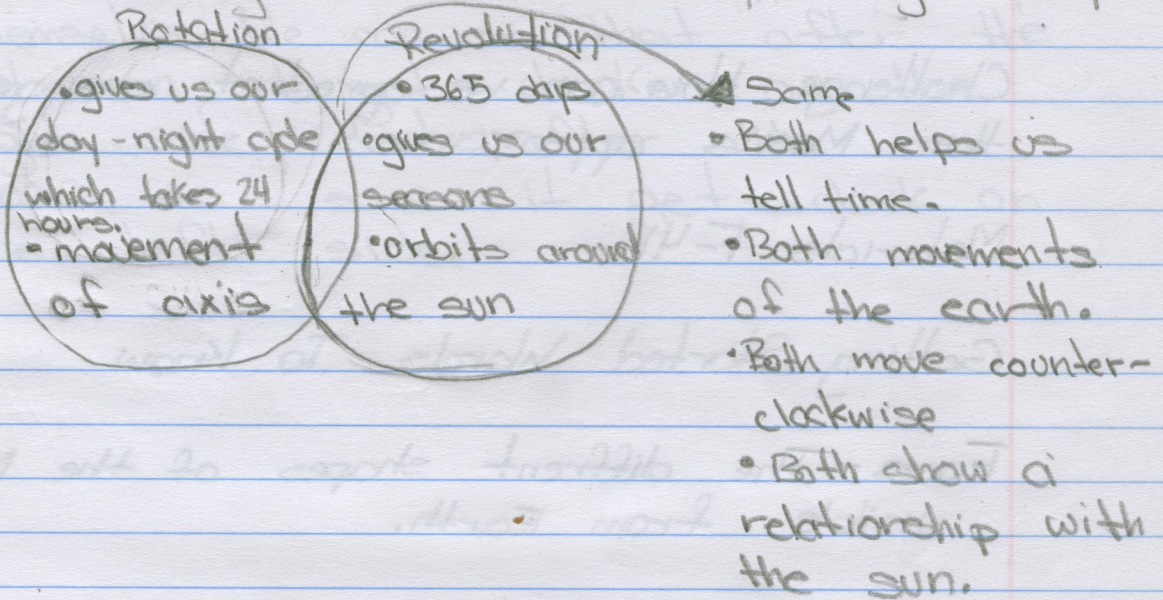 Rotation
• gives us our
day-night cycle
which takes 24
hours.
• movement
of axis
Revolution
• 365 days
• gives us our
seasons
• orbits around
the sun
Same
• Both helps us
tell time.
• Both movements
of the earth.
• Both move counter-
clockwise
• Both show a
relationship with
the sun.